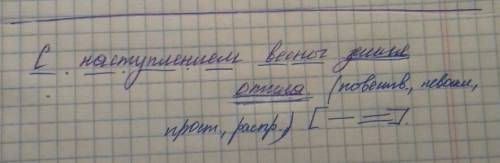 С наступлением весны земля
ожила (повеств, невоскл,
прост., распр.) [— =].